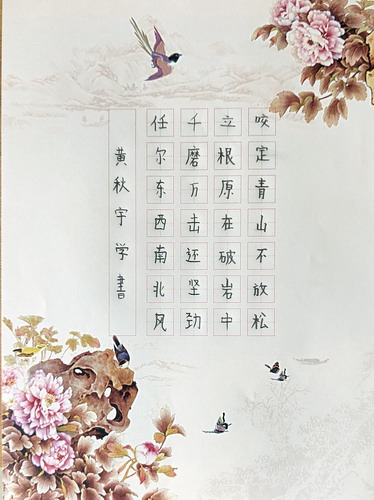 咬定青山不放松
立根原在破岩中
千磨万击还坚劲
任尔东西南北风
黄秋宇学书